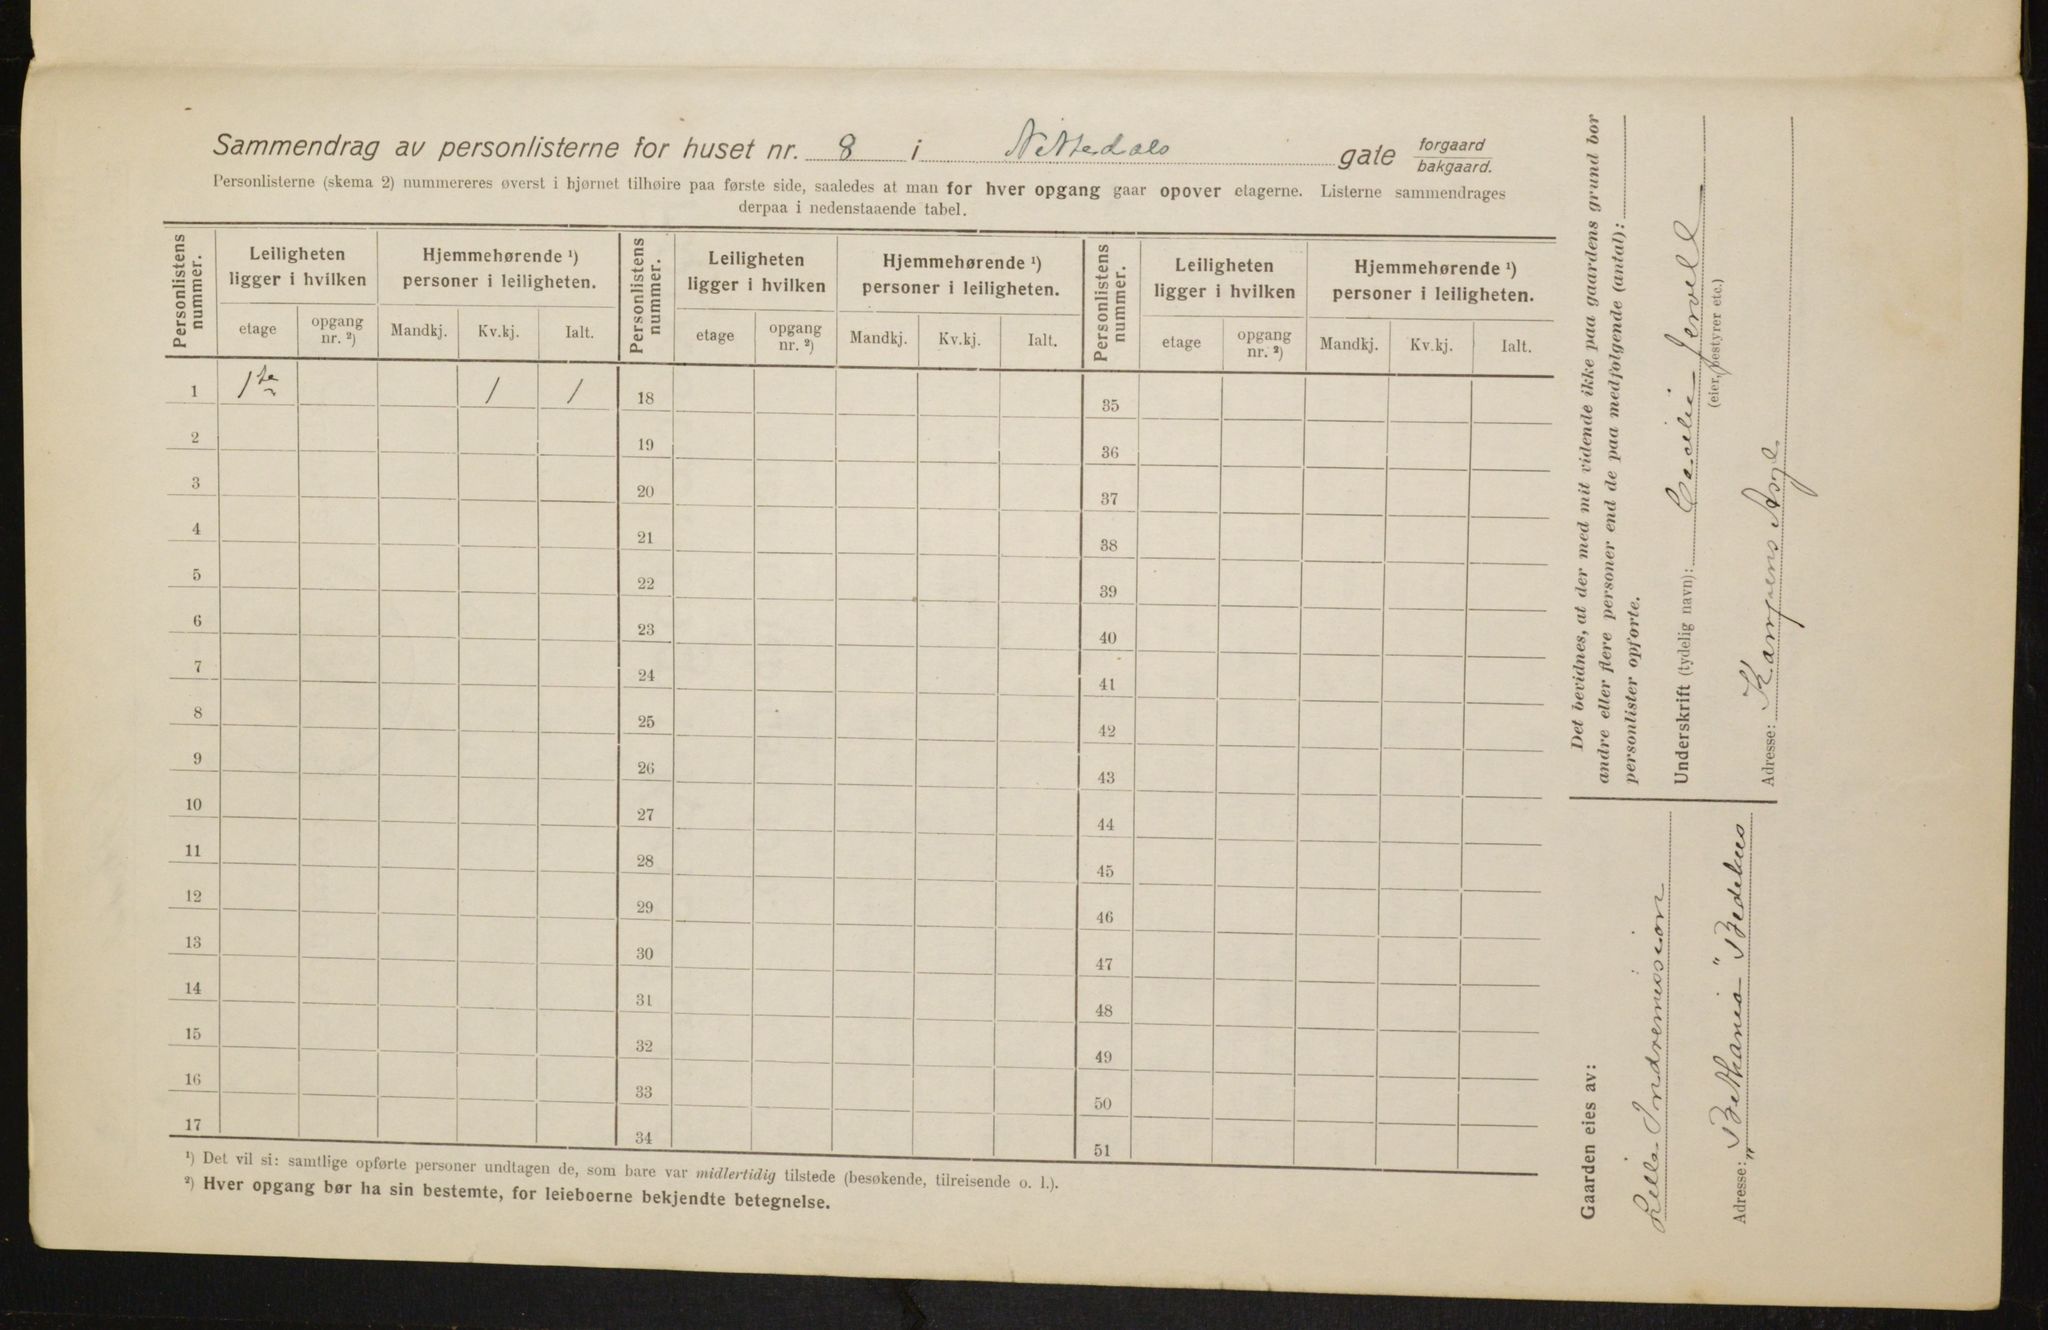 Sammendrag av personlisterne for huset nr. 8 i Nittedals gate forgaard
bakgaard.
Personlisterne (skema 2) nummereres øverst i hjørnet tilhøire paa første side, saaledes at man for hver opgang gaar opover etagerne. Listerne sammendrages
derpaa i nedenstaaende tabel.
Personlistens nummer. Leiligheten ligger i hvilken Hjemmehørende ¹) personer i leiligheten. Personlistens nummer. Leiligheten ligger i hvilken Hjemmehørende ¹) personer i leiligheten. Personlistens nummer. Leiligheten ligger i hvilken Hjemmehørende ¹) personer i leiligheten.
etage opgang nr. ²) Mandkj. Kv.kj. Ialt. etage opgang nr. ²) Mandkj. Kv.kj. Ialt. etage opgang nr. ²) Mandkj. Kv.kj. Ialt.
1 1ste 1 1 18 35
2 19 36
3 20 37
4 21 38
5 22 39
6 23 40
7 24 41
8 25 42
9 26 43
10 27 44
11 28 45
12 29 46
13 30 47
14 31 48
15 32 49
16 33 50
17 34 51
¹) Det vil si: samtlige opførte personer undtagen de, som bare var midlertidig tilstede (besøkende, tilreisende o. l.).
²) Hver opgang bør ha sin bestemte, for leieboerne bekjendte betegnelse.
Det bevidnes, at der med mit vidende ikke paa gaardens grund bor
andre eller flere personer end de paa medfølgende (antal):
personlister opførte.
Underskrift (tydelig navn): Cecilie Jervell
(eier, bestyrer etc.)
Adresse: Kampens Asyl
Gaarden eies av:
Indremission
Adresse: "Bethania" Bedehus